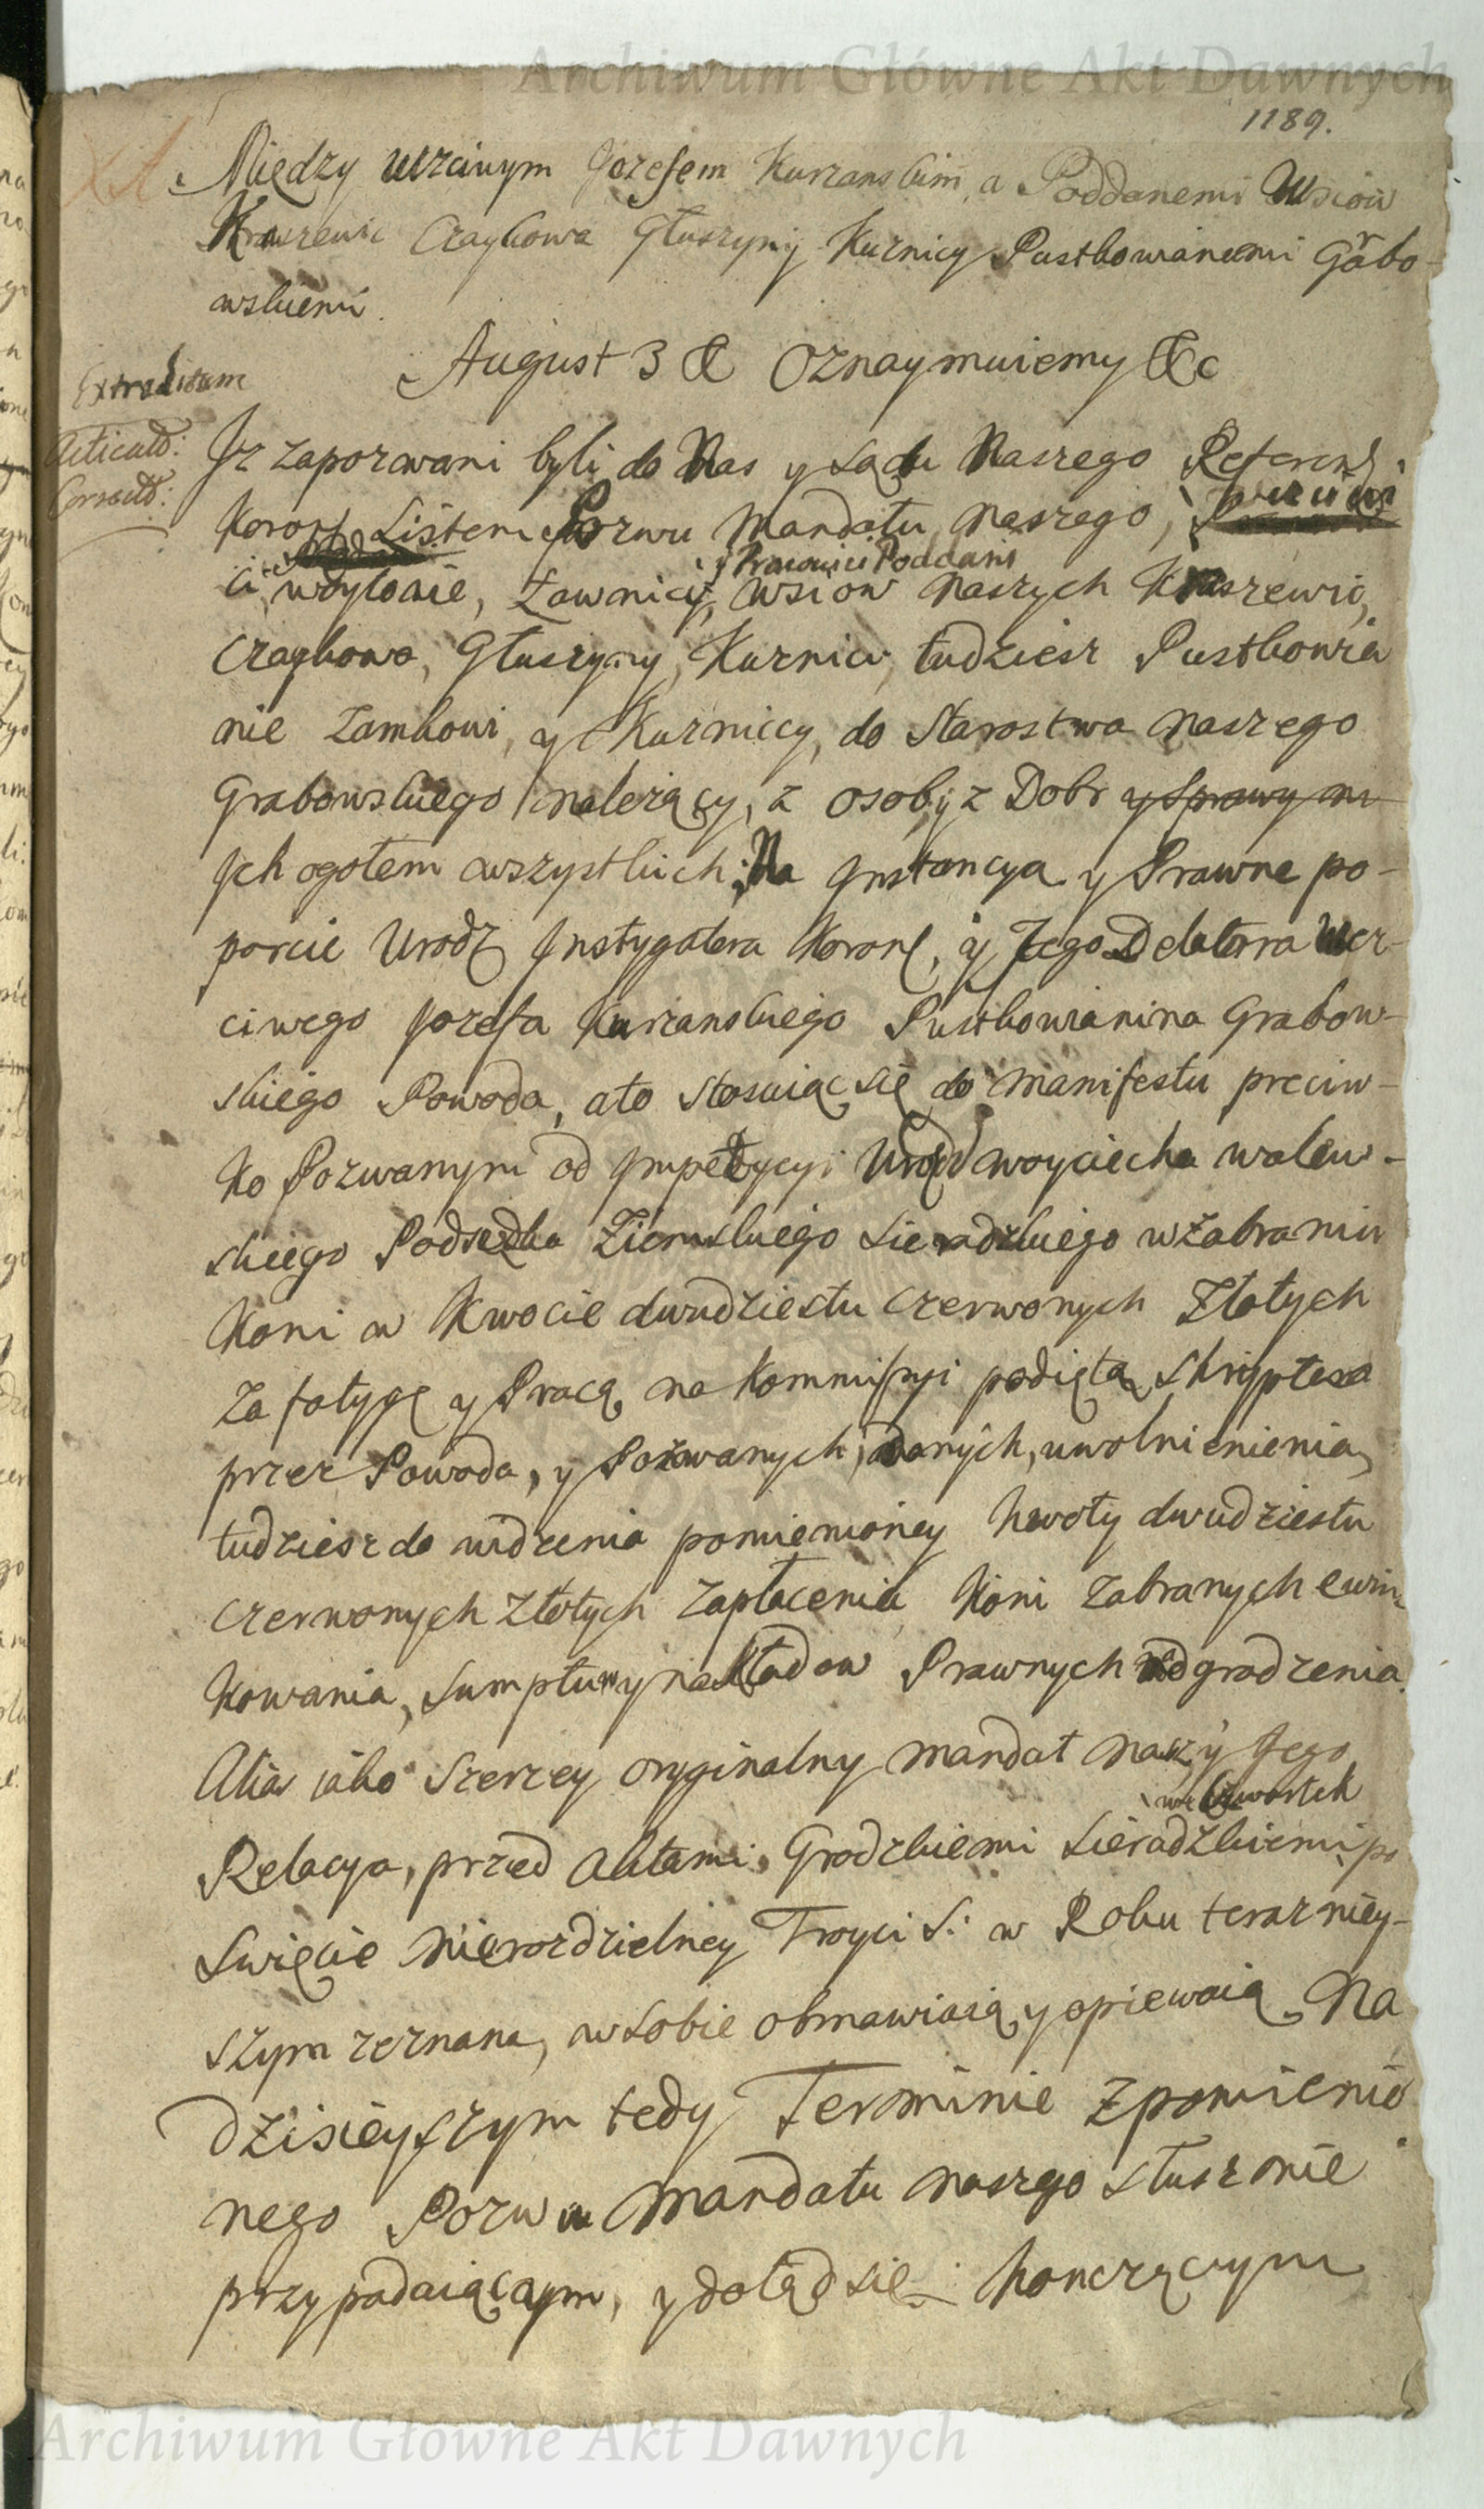 Archiwum Główne Akt Dawnych
1189.
Między Uczciwym Jozefem Kurzanskim, a Poddanemi Wsiow
Kraszewic Czaykowa Głuszyny Kuznicy Pustkowianemi Grabo-
wskiemi.
August 3 & Oznaymuiemy &c
Extraditum
Jz zapozwani byli do Nas y Sądu Naszego Referend
Koron Listem Pozwu Mandatu Naszego, Uczciwi
y Pracowici Poddani
woytowie, Ławnicy, Wsiow Naszych Kraszewic,
Czaykowa, Głuszyny, Kuznicy, tudziesz Pustkowia
nie Zamkowi, y Kuzniccy, do Starostwa Naszego
Grabowskiego należący, z osoby z Dobr y Sprawy ni
Jch ogołem wszystkich; Na Jnstancya y Prawne po-
parcie Urodz Jnstygatora Koron, y Jego Delatora Ucz-
ciwego Jozefa Kurzanskiego Pustkowianina Grabow-
skiego Powoda, ato stosuiąc się do Manifestu preciw-
ko Pozwanym od Jmpetycyi Urodz woyciecha walew-
skiego Podsędka Ziemskiego Sieradzkiego wzabraniu
Koni w Kwocie dwudziestu czerwonych Złotych
Za fatygę y Pracą na Kommissyi podiętą Skryptem
przez Powoda, y Pozwanych, danych, uwolnienienia,
tudziesz do widzenia pomienioney kwoty dwudziestu
czerwonych Złotych Zapłacenia Koni Zabranych ewin-
kowania, Sumptuw y nakładow Prawnych nadgrodzenia.
Alias iako Szerzey oryginalny Mandat Nasz y Jego
we Czwartek
Relacya, przed Aktami Grodzkiemi Sieradzkiemi po
Swięcie Nierozdzielney Troyci S: w Roku teraznięy-
szym zeznana, wsobie obmawiaią y opiewaią. Na
Dzisieyszym tedy Terminie zpomienio
nego Pozwu Mandatu Naszego słusznie
przypadaiącym, y dotąd się kończącym
Archiwum Główne Akt Dawnych